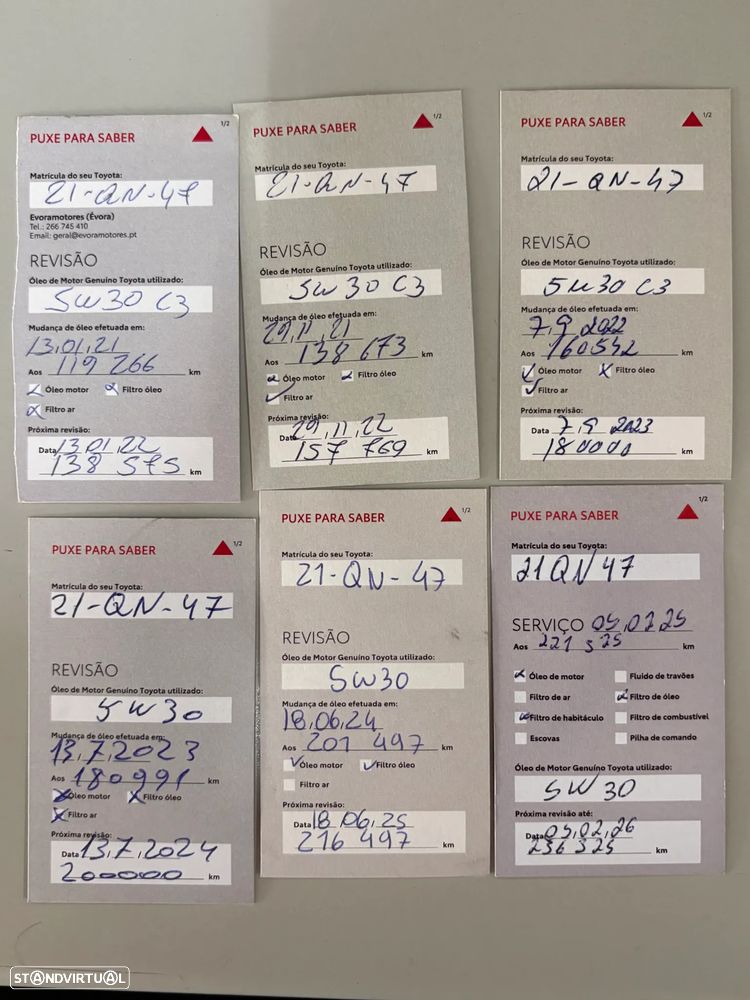 PUXE PARA SABER
1/2
Matrícula do seu Toyota:
21-QN-47
Evoramotores (Évora)
Tel.: 266 745 410
Email: geral@evoramotores.pt
REVISÃO
Óleo de Motor Genuíno Toyota utilizado:
5W30 C3
Mudança de óleo efetuada em:
13,01,21
Aos 119 266 km
Óleo motor Filtro óleo
Filtro ar
Próxima revisão:
Data 13,01,22
138 575 km
PUXE PARA SABER
1/2
Matrícula do seu Toyota:
21-QN-47
REVISÃO
Óleo de Motor Genuíno Toyota utilizado:
5W30 C3
Mudança de óleo efetuada em:
29,11,21
Aos 138 673 km
Óleo motor Filtro óleo
Filtro ar
Próxima revisão:
Data 29,11,22
157 769 km
PUXE PARA SABER
1/2
Matrícula do seu Toyota:
21-QN-47
REVISÃO
Óleo de Motor Genuíno Toyota utilizado:
5W30 C3
Mudança de óleo efetuada em:
7,9,2022
Aos 160542 km
Óleo motor Filtro óleo
Filtro ar
Próxima revisão:
Data 7,9,2023
180000 km
PUXE PARA SABER
1/2
Matrícula do seu Toyota:
21-QN-47
REVISÃO
Óleo de Motor Genuíno Toyota utilizado:
5W30
Mudança de óleo efetuada em:
13,7,2023
Aos 180991 km
Óleo motor Filtro óleo
Filtro ar
Próxima revisão:
Data 13,7,2024
200000 km
PUXE PARA SABER
1/2
Matrícula do seu Toyota:
21-QN-47
REVISÃO
Óleo de Motor Genuíno Toyota utilizado:
5W30
Mudança de óleo efetuada em:
18,06,24
Aos 201 497 km
Óleo motor Filtro óleo
Filtro ar
Próxima revisão:
Data 18,06,25
216 497 km
PUXE PARA SABER
1/2
Matrícula do seu Toyota:
21QN47
SERVIÇO 05,02,25
Aos 221 325 km
Óleo de motor Fluido de travões
Filtro de ar Filtro de óleo
Filtro de habitáculo Filtro de combustível
Escovas Pilha de comando
Óleo de Motor Genuíno Toyota utilizado:
5W30
Próxima revisão até:
Data 05,02,26
236 325 km
STANDVIRTUAL